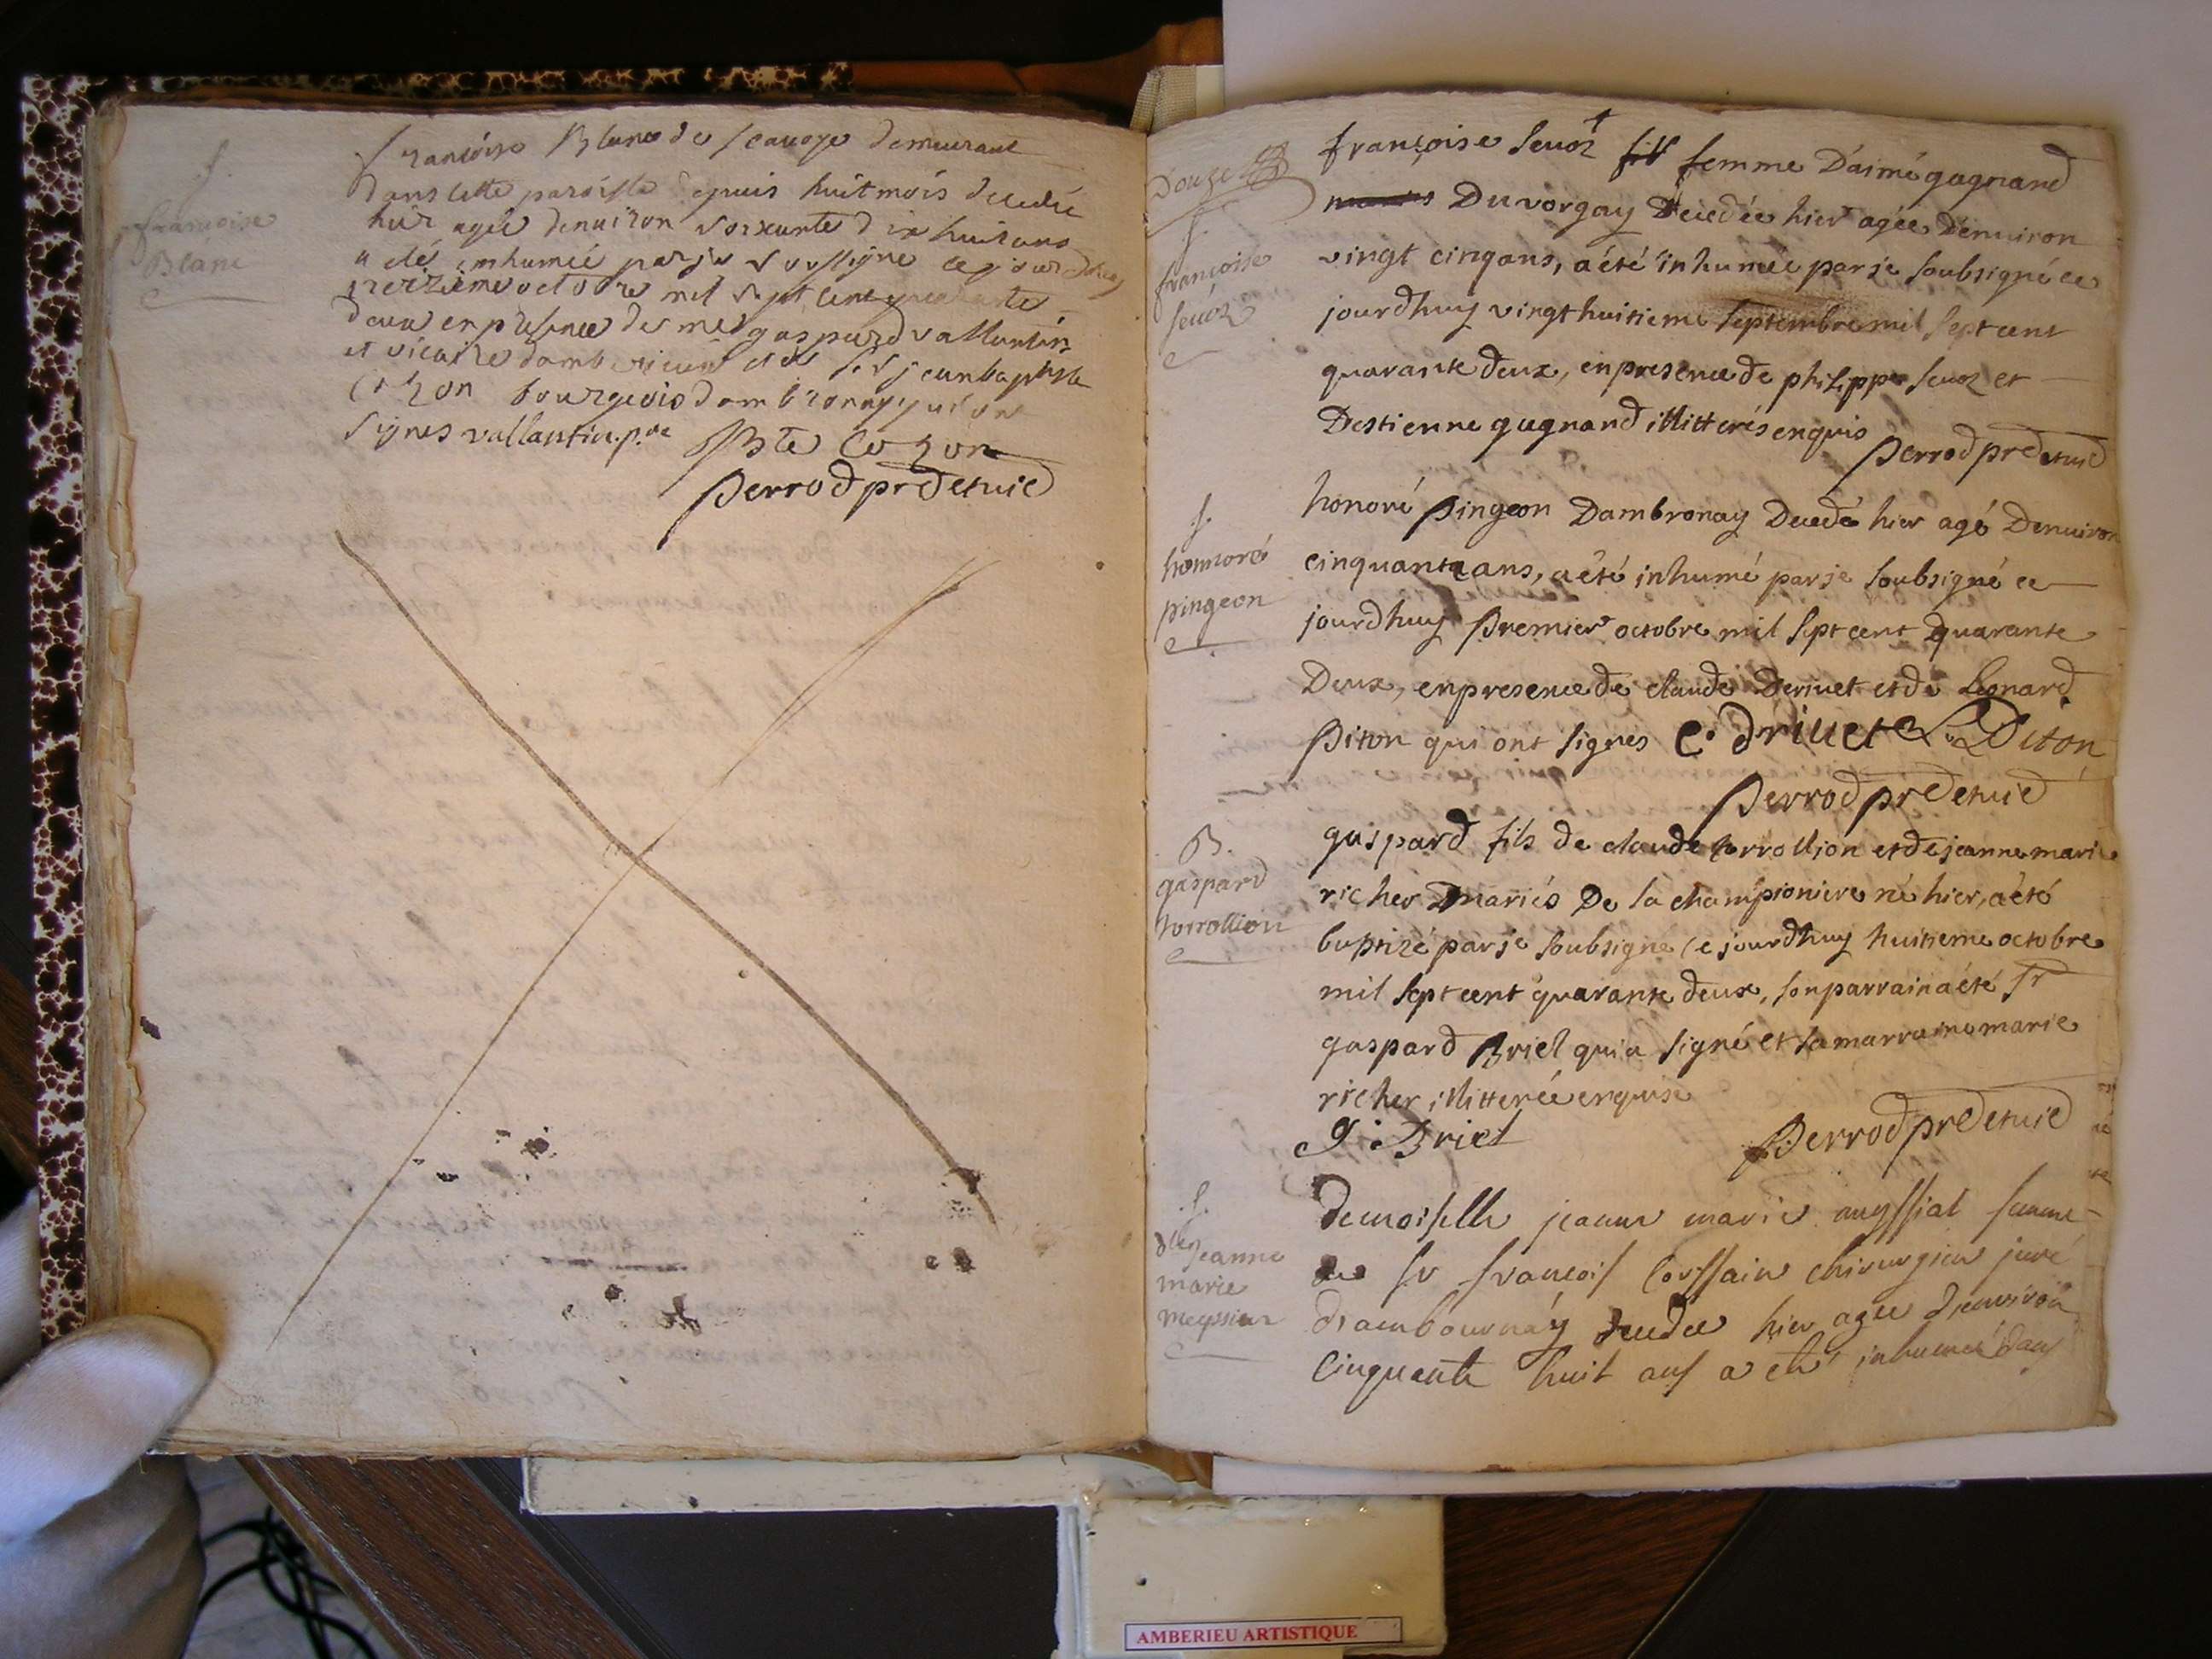 f.
françoise
Blanc
françoise Blanc de scavoye demeurant
dans cette paroisse depuis huit mois decedée
hier agée denviron soixante dix huit ans
a été inhumée par je soussigné ce jourdhuy
treizieme octobre mil sept cent quarante
deux en presence de me gaspard vallantin
et vicaire damberieux et de sr jean baptiste
Cozon bourgeois dambronay qui ont
signes vallantin p.re JBte Cozon
Perrod prd et vic
Douze
f.
françoise
sevoz
françoise sevoz femme D'aimé gagnand
Du vorgay Decedée hier agée Denviron
vingt cinq ans, a été inhumée par je soubsigné ce
jourdhuy vingt huitieme septembre mil sept cent
quarante deux, en presence de philippe sevoz et
Destienne gagnand illitterés enquis
Perrod prd et vic
f.
honnoré
pingeon
honoré pingeon Dambronay Decedé hier agé Denviron
cinquante ans, a été inhumé par je soubsigné ce
jourdhuy Premier octobre mil sept cent quarante
Deux, en presence de claude Derivet et de Leonard
Piton qui ont signes C. drivet L. Piton
Perrod prd et vic
B.
gaspard
torrollion
gaspard fils de claude torrollion et de jeanne marie
richer mariés De la championiere né hier, a été
baptizé par je soubsigné ce jourdhuy huitieme octobre
mil sept cent quarante deux, son parrain a été sr
gaspard Briel qui a signé et sa marraine marie
richer illitterée enquise
g. Briel Perrod prd et vic
f.
dlle jeanne
marie
meyssiat
demoiselle jeanne marie meyssiat femme
de sr françois Corssain chirurgien juré
d'ambournay decedée hier agée d'environ
Cinquante huit ans a eté inhumée dans
AMBERIEU ARTISTIQUE